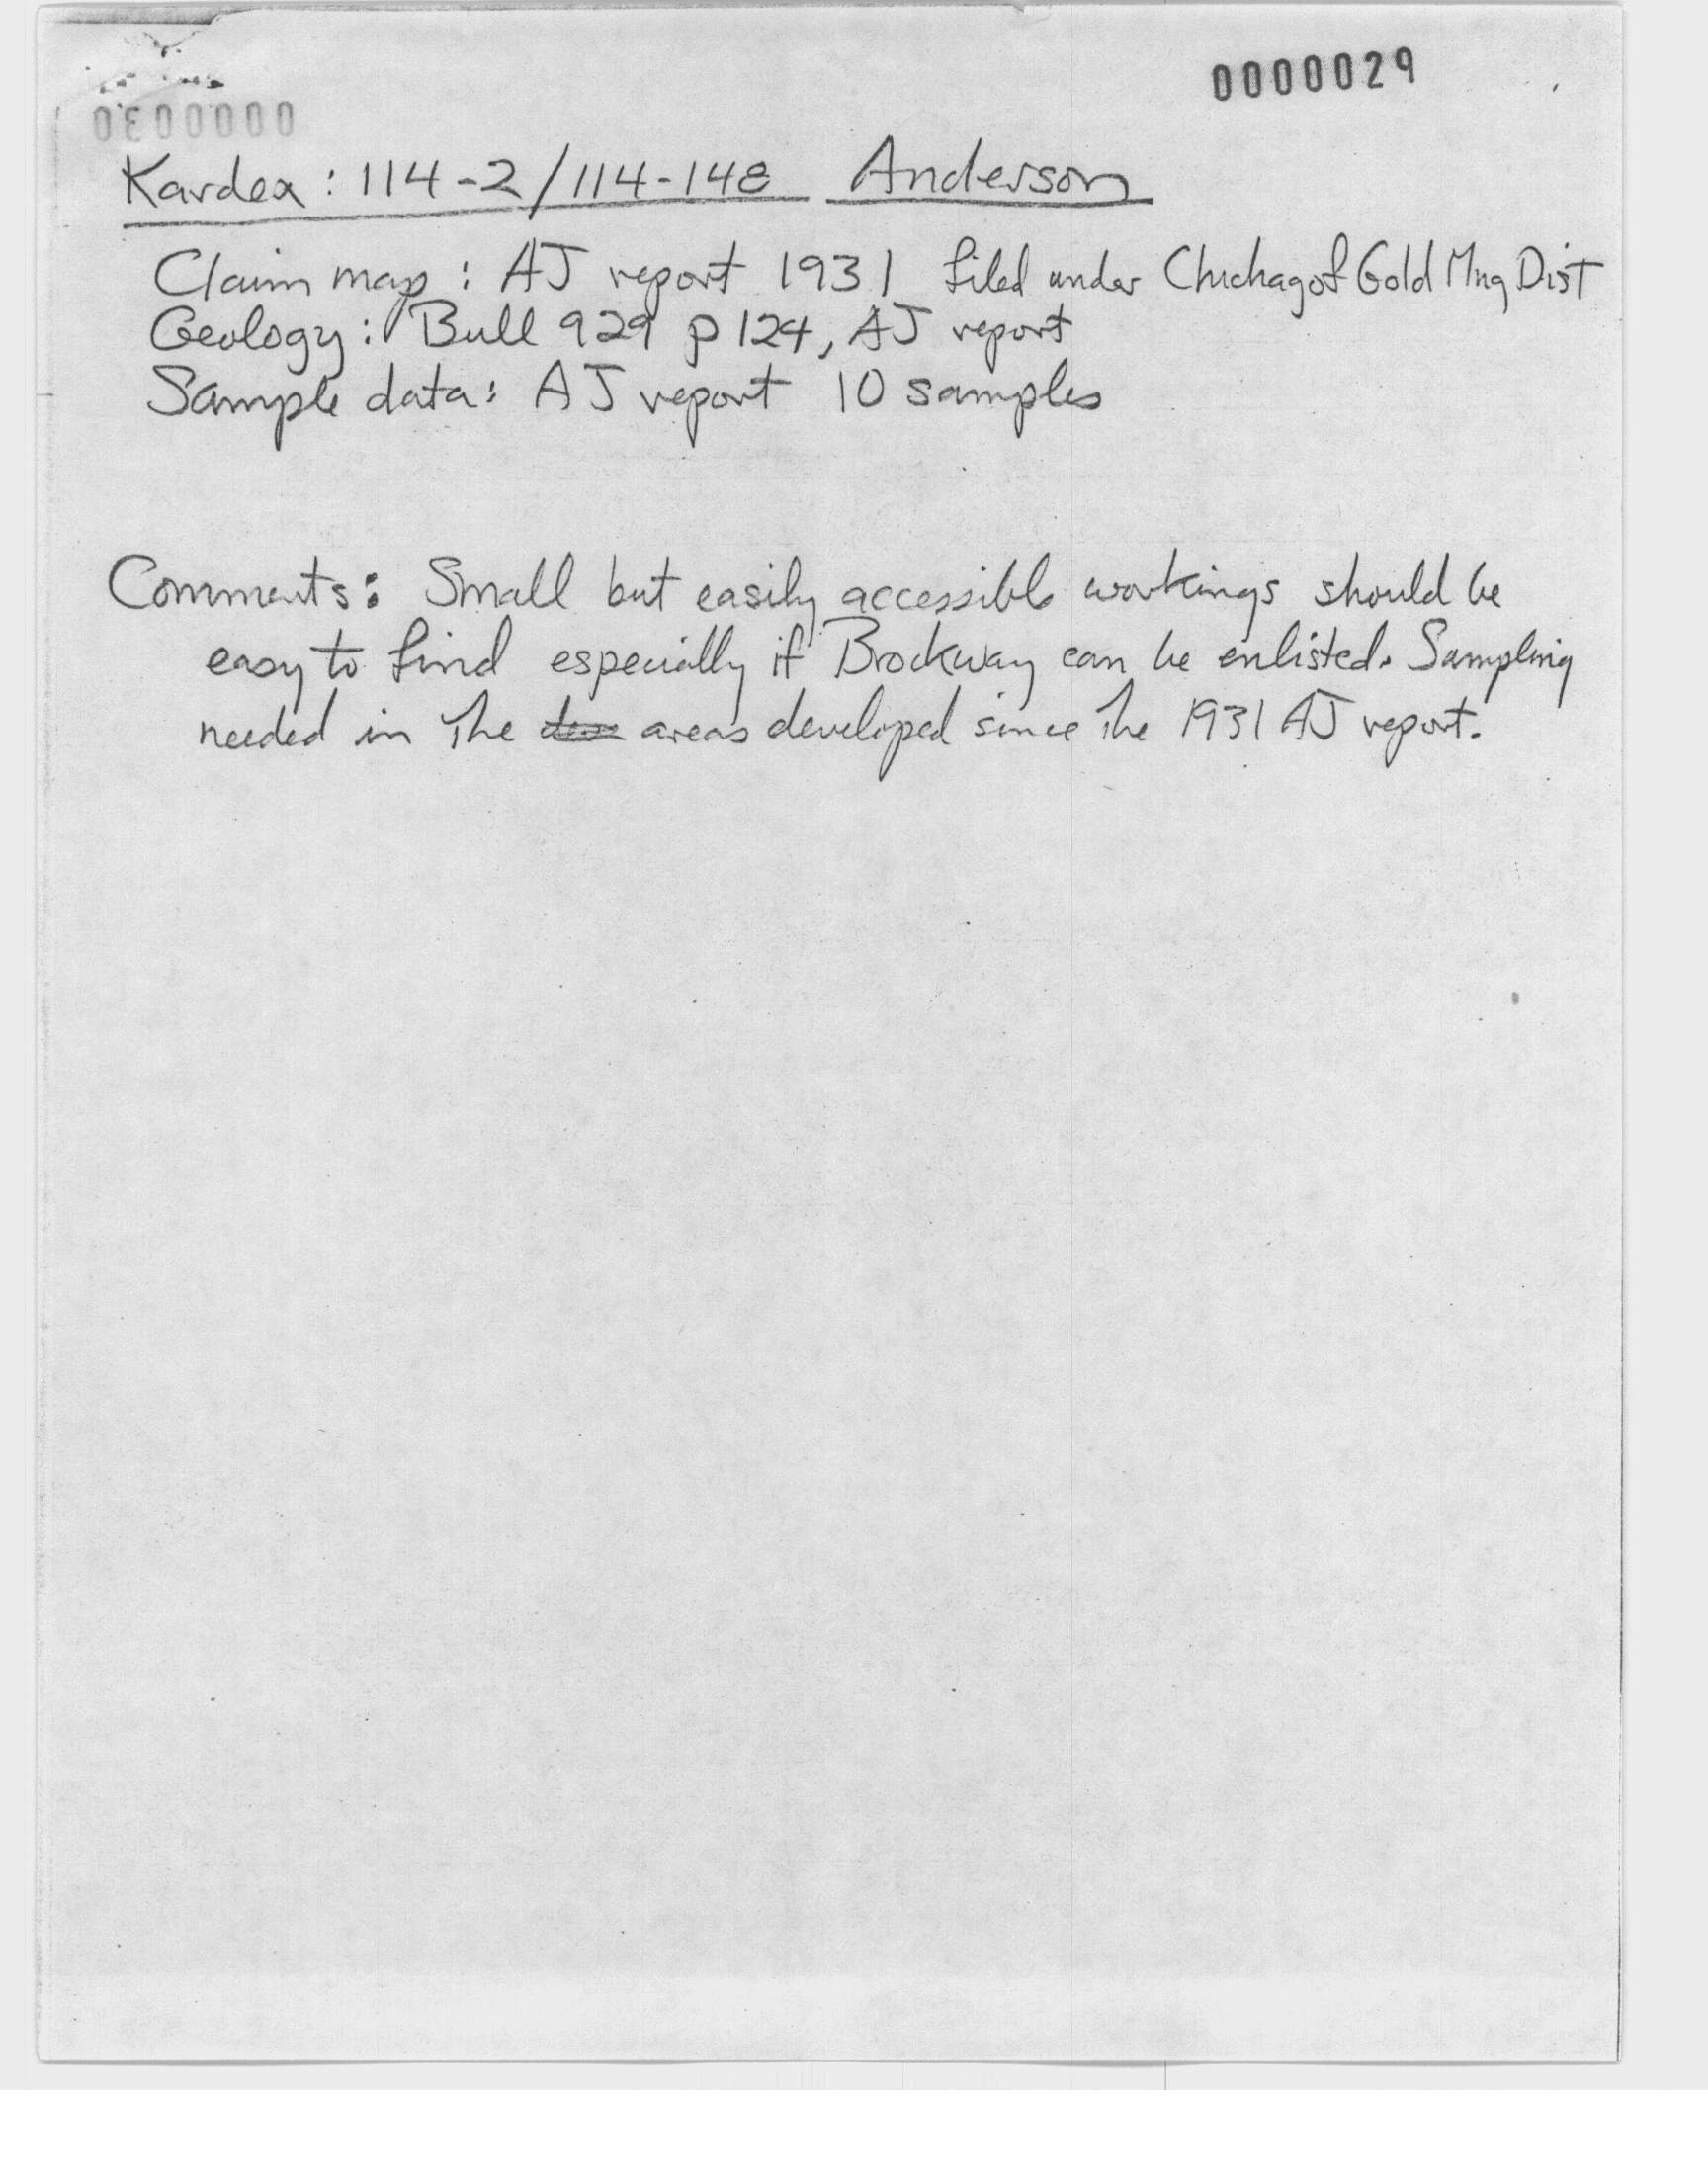 0000029
0000030
Kardex: 114-2/114-148 Anderson
Claim map: AJ report 1931 filed under Chichagof Gold Mng Dist
Geology: Bull 929 p 124, AJ report
Sample data: AJ report 10 samples
Comments: Small but easily accessible workings should be
easy to find especially if Brockway can be enlisted. Sampling
needed in the areas developed since the 1931 AJ report.